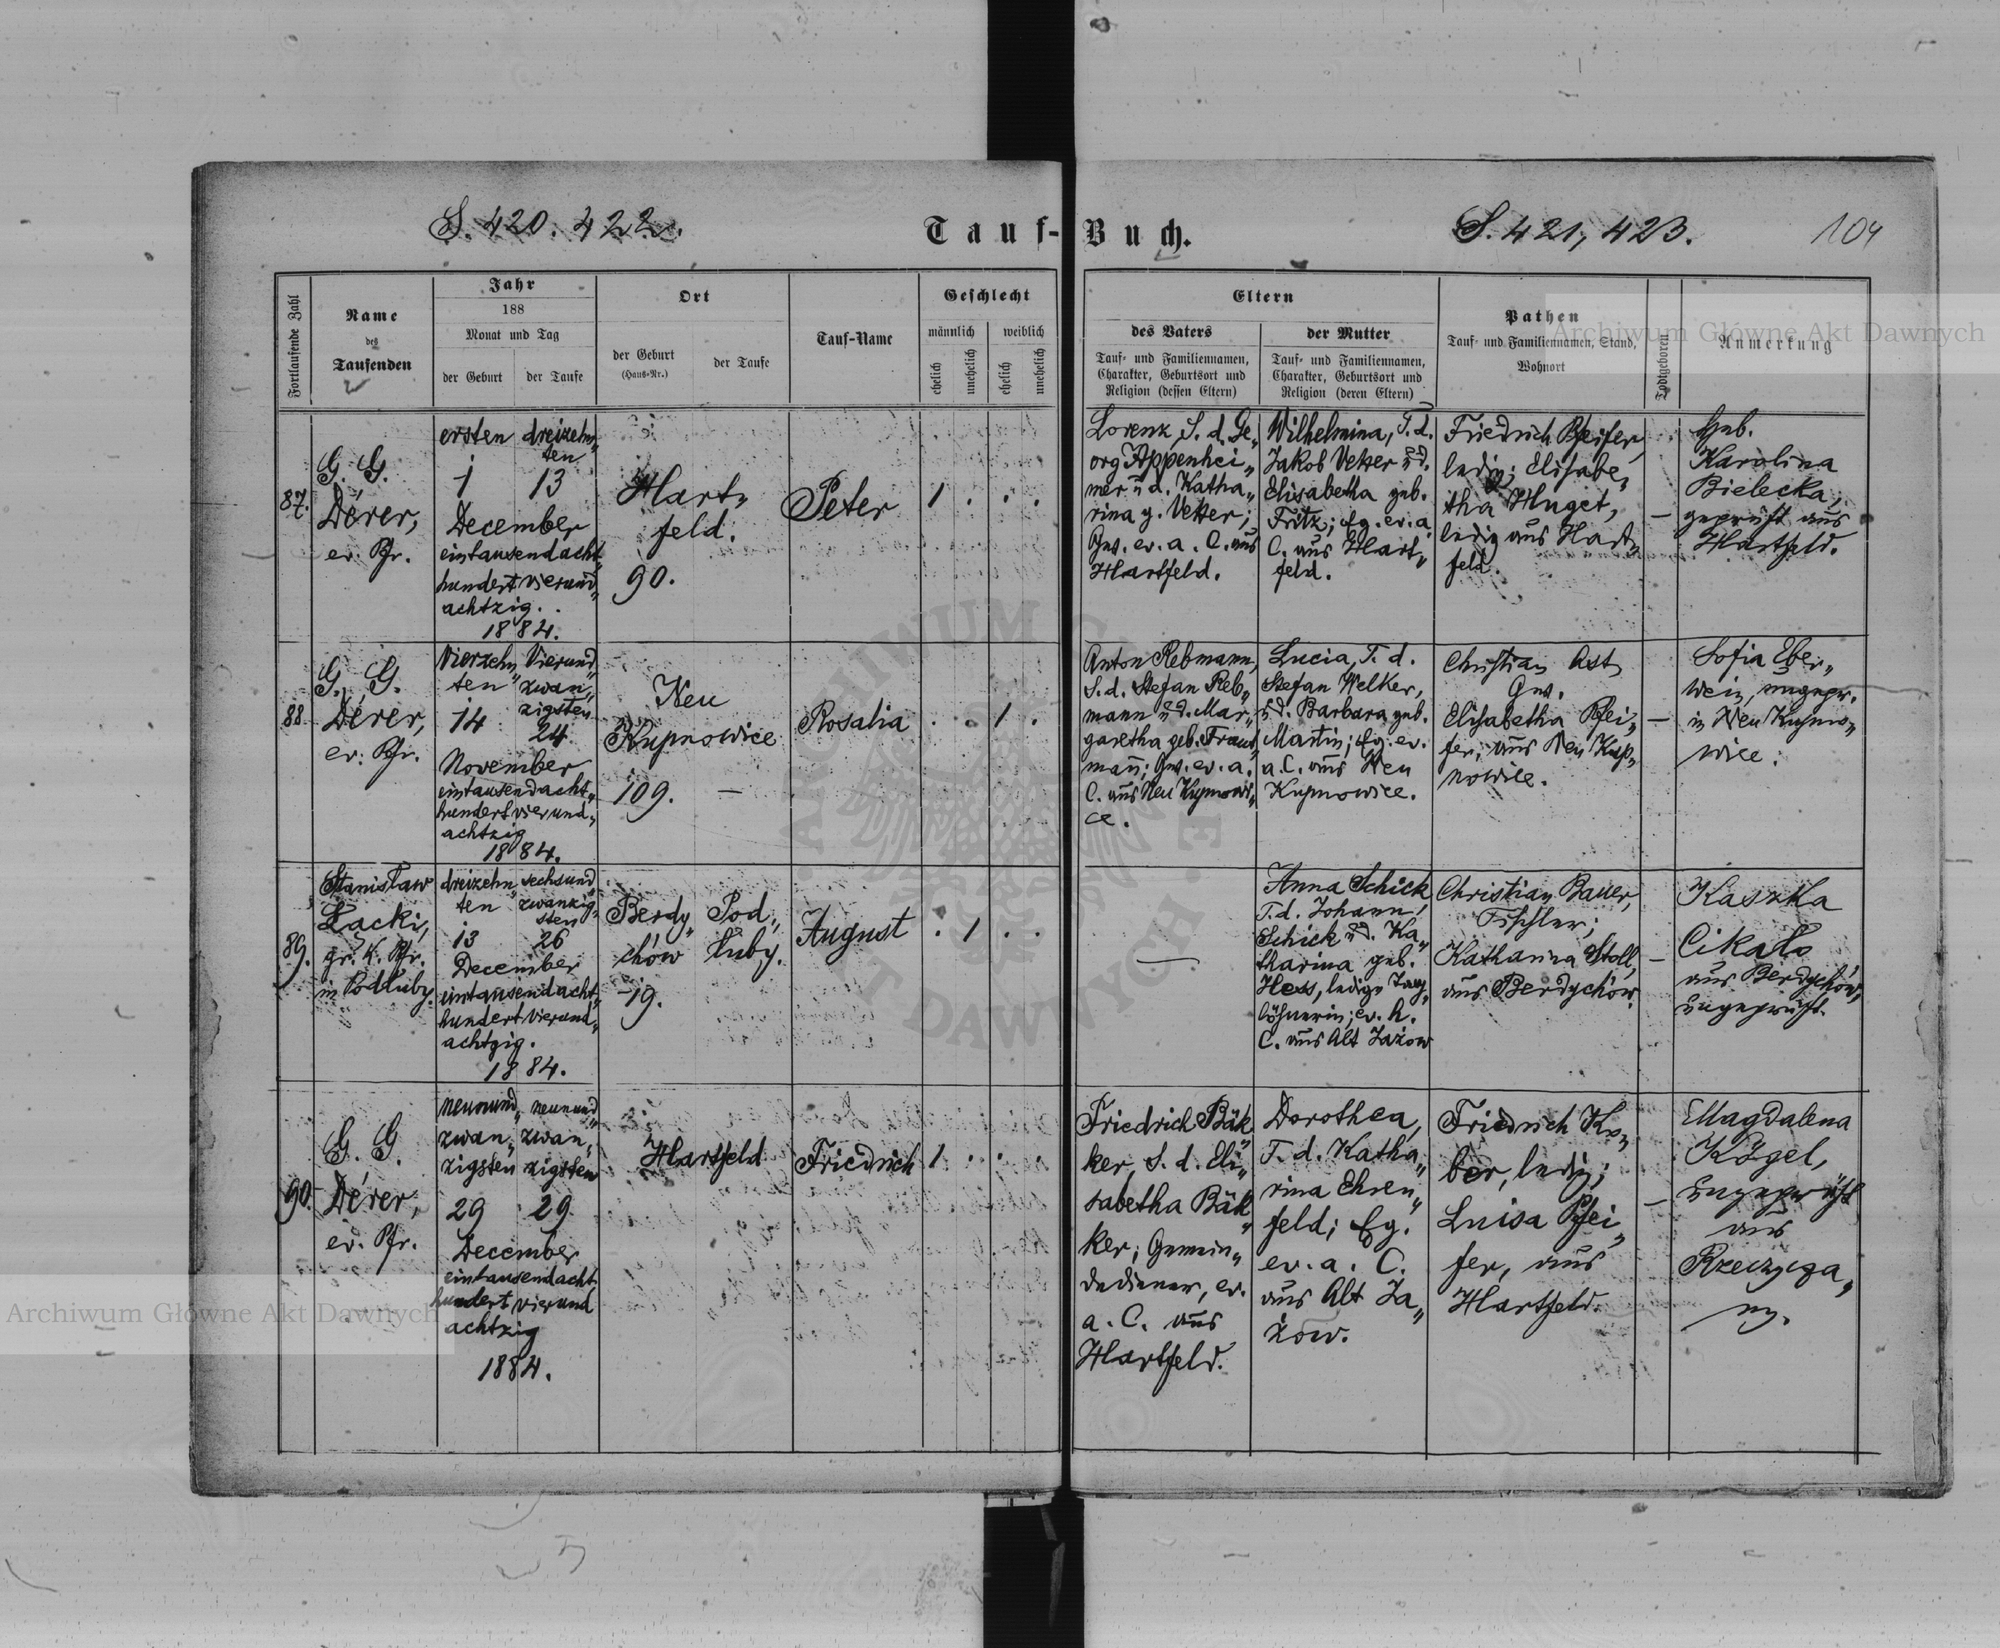 S. 420. 422.
Tauf-Buch.
S. 421, 423.
104
Fortlaufende Zahl
Name
des
Taufenden
Jahr
188
Monat und Tag
der Geburt
der Taufe
Ort
der Geburt
(Haus-Nr.)
der Taufe
Tauf-Name
Geschlecht
männlich
weiblich
ehelich
unehelich
ehelich
unehelich
Eltern
des Vaters
Tauf- und Familiennamen,
Charakter, Geburtsort und
Religion (dessen Eltern)
der Mutter
Tauf- und Familiennamen,
Charakter, Geburtsort und
Religion (deren Eltern)
Pathen
Tauf- und Familiennamen, Stand,
Wohnort
Todtgeboren
Anmerkung
87.
G. G.
Dérer,
ev. Pfr.
ersten
1
dreizehn„
ten
13
December
eintausendacht„
hundertvierund„
achtzig.
1884.
Hart„
feld.
90.
Peter
1 . . .
Lorenz, S. d. Ge„
org Appenhei„
mer u d. Katha„
rina g. Vetter;
Gw. ev. a. C. aus
Hartfeld.
Wilhelmina, T. d.
Jakob Vetter u d.
Elisabetha geb.
Fritz; Eg. ev. a
C. aus Hart„
feld.
Friedrich Pfeifer,
ledig; Elisabe„
tha Huget,
ledig aus Hart„
feld.
—
Heb.
Karolina
Bielecka,
geprüft aus
Hartfeld.
88
G. G.
Dérer,
ev. Pfr.
Vierzehn„
ten
14
Vierund„
zwan„
zigsten
24
November
eintausendacht„
hundertvierund„
achtzig
1884.
Neu
Kupnowice
109. —
Rosalia
. . 1 .
Anton Rebmann,
S. d. Stefan Reb„
mann u d. Mar„
garetha geb. Traut„
mann; Gw. ev. a.
C. aus Neu Kupnowi„
ce.
Lucia, T. d.
Stefan Welker,
u d. Barbara geb.
Martin; Eg. ev.
a. C. aus Neu
Kupnowice.
Christian Ast,
Gw.
Elisabetha Pfei„
fer; aus Neu Kup„
nowice.
—
Sofia Eber„
wein, ungepr.
in Neu Kupno„
wice.
89.
Stanisław
Łacki,
gr. k. Pfr.
in Podłuby.
dreizehn„
ten
13
sechsund„
zwanzig„
sten
26
December
eintausendacht„
hundertvierund„
achtzig.
1884.
Berdy„
chów
19.
Pod„
łuby.
August
. 1 . .
—
Anna Schick
T. d. Johann
Schick u d. Ka„
tharina geb.
Hess, ledige Tag„
löhnerin; ev. h.
C. aus Alt Jażow
Christian Bauer,
Tischler;
Katharina Stoll,
aus Berdychów.
—
Kaszka
Cikało
aus Berdychów,
ungeprüft.
90.
G. G.
Dérer,
ev. Pfr.
neunund„
zwan„
zigsten
29
neunund„
zwan„
zigsten
29
December
eintausendacht
hundertvierund
achtzig
1884.
Hartfeld
Friedrich
1 . . .
Friedrich Bäk„
ker, S. d. Eli„
sabetha Bäk„
ker; Gemein„
dediener, ev.
a. C. aus
Hartfeld.
Dorothea,
T. d. Katha„
rina Ehren„
feld; Eg.
ev. a. C.
aus Alt Ja„
żow.
Friedrich Ko„
ber, ledig;
Luisa Pfei„
fer, aus
Hartfeld.
—
Magdalena
Kögel,
ungeprüft
aus
Archiwum Główne Akt Dawnych
Archiwum Główne Akt Dawnych